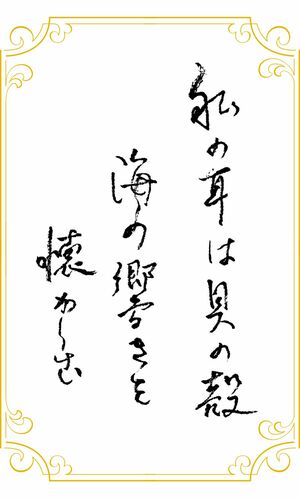 私の耳は貝の殻
海の響きを
懐かしむ